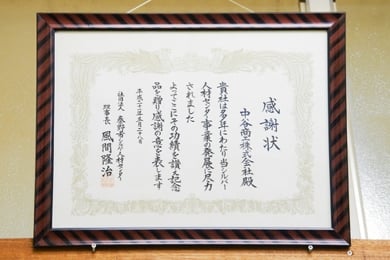 感謝状
中谷商工株式会社殿
貴社は多年にわたり当シルバー
人材センター事業の発展に尽力
されました
よってここにその功績を讃え記念
品を贈り感謝の意を表します
平成二十二年五月二十八日
社団法人 秦野市シルバー人材センター
理事長 風間隆治